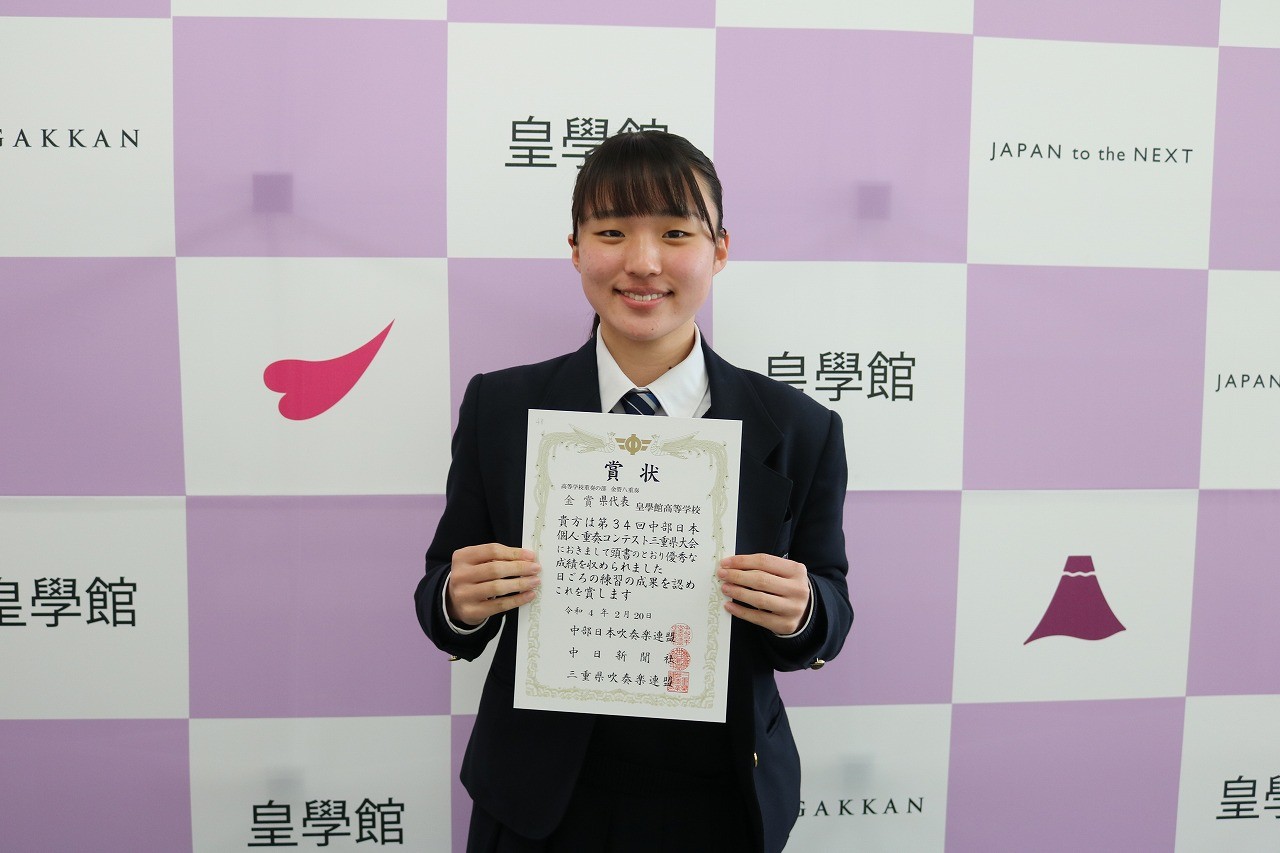 GAKKAN
皇學館
JAPAN to the NEXT
皇學館
JAPAN
皇學館
皇學館
GAKKAN
皇
賞状
高等学校重奏の部 金管八重奏
金賞 県代表 皇學館高等学校
貴方は第34回中部日本
個人重奏コンテスト三重県大会
におきまして頭書のとおり優秀な
成績を収められました
日ごろの練習の成果を認め
これを賞します
令和4年2月20日
中部日本吹奏楽連盟
中日新聞社
三重県吹奏楽連盟